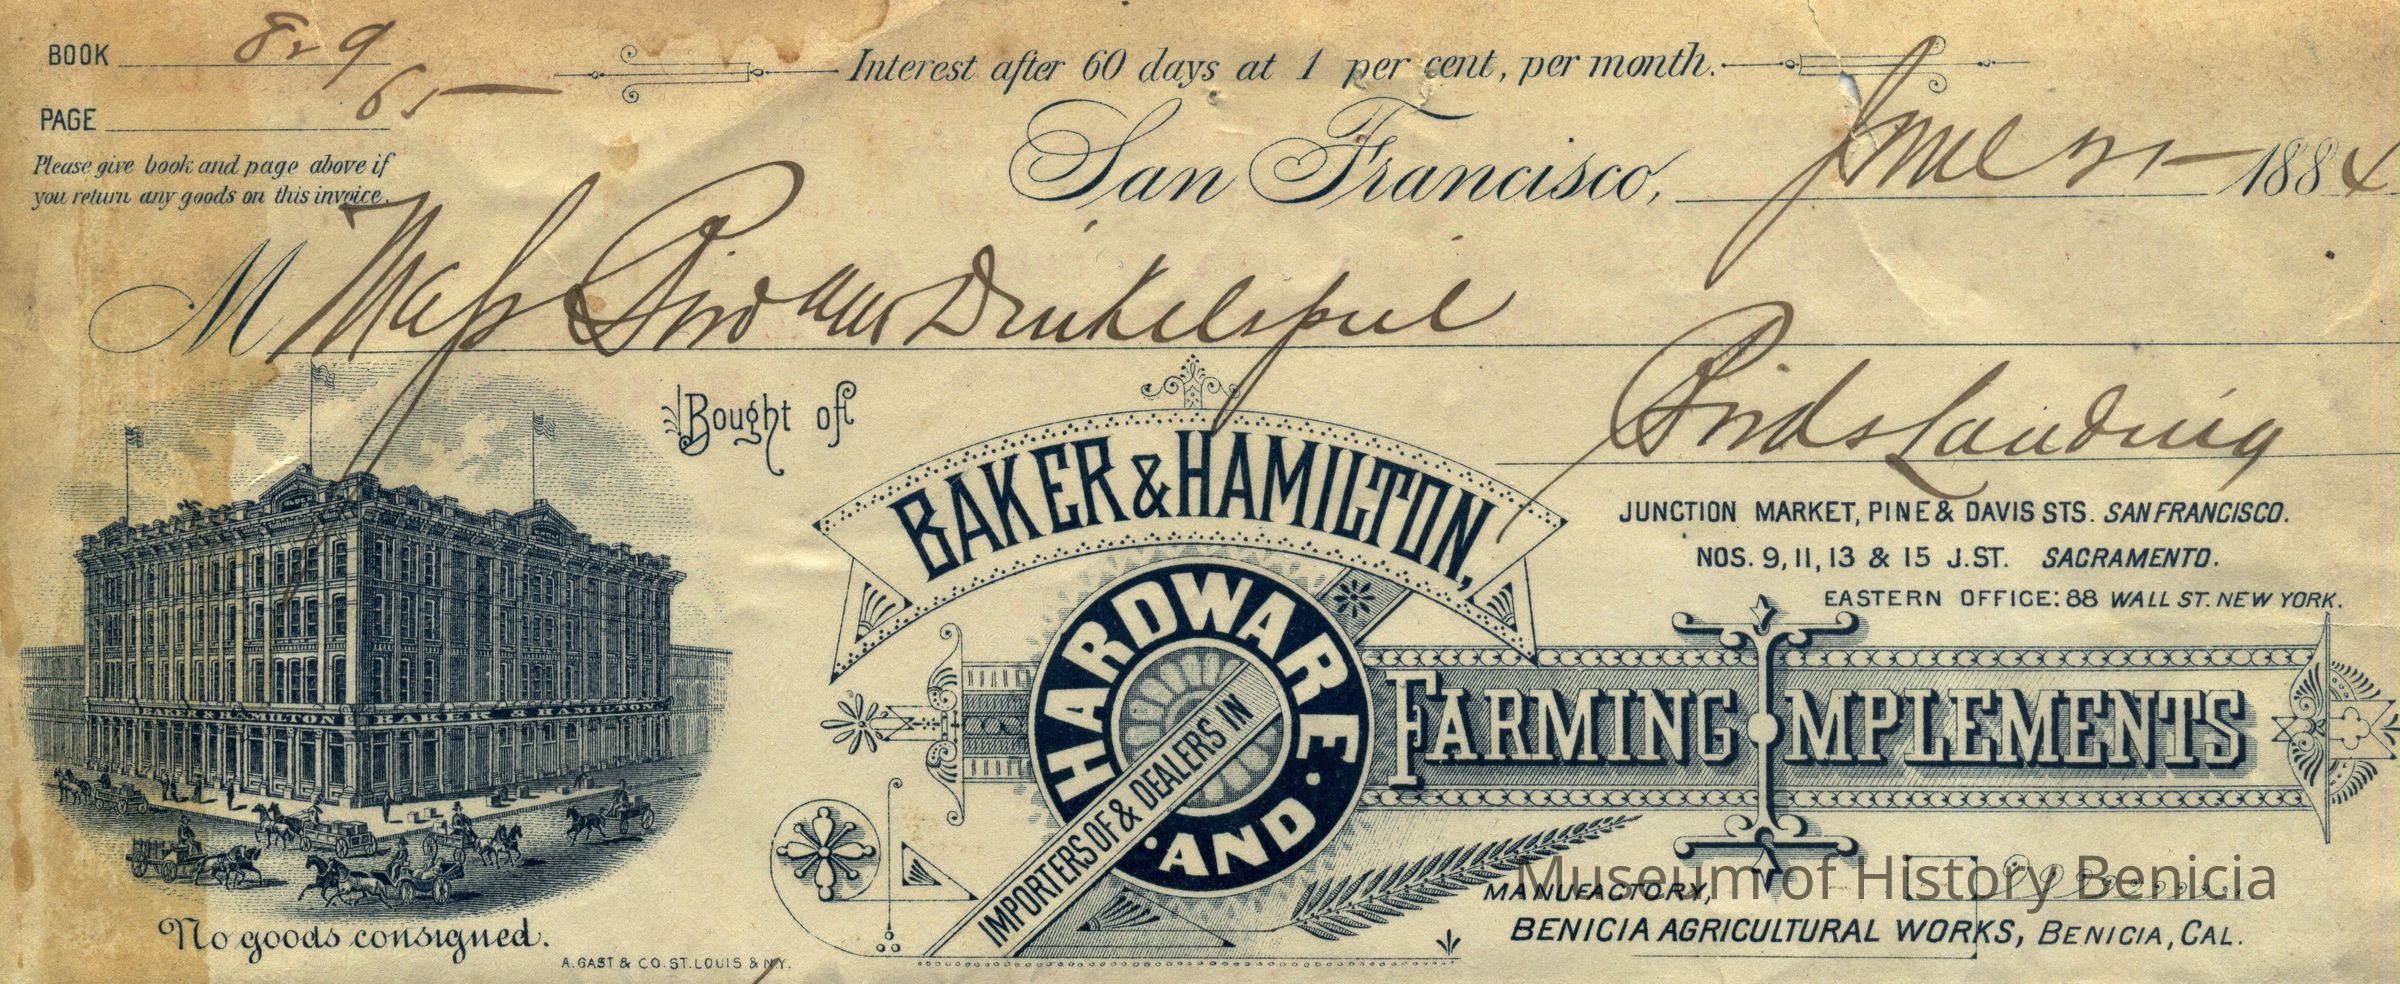 BOOK 829
Interest after 60 days at 1 per cent, per month.
PAGE 65
Please give book and page above if
you return any goods on this invoice.
San Francisco, June 21 1884
M Mess Bird and Dinkelspiel
Birds Landing
Bought of
BAKER & HAMILTON,
JUNCTION MARKET, PINE & DAVIS STS. SAN FRANCISCO.
NOS. 9, 11, 13 & 15 J. ST. SACRAMENTO.
EASTERN OFFICE: 88 WALL ST. NEW YORK.
BAKER & HAMILTON BAKER & HAMILTON
IMPORTERS OF & DEALERS IN
HARDWARE · AND ·
FARMING IMPLEMENTS
MANUFACTORY,
BENICIA AGRICULTURAL WORKS, BENICIA, CAL.
No goods consigned.
A. GAST & CO. ST. LOUIS & N.Y.
Museum of History Benicia